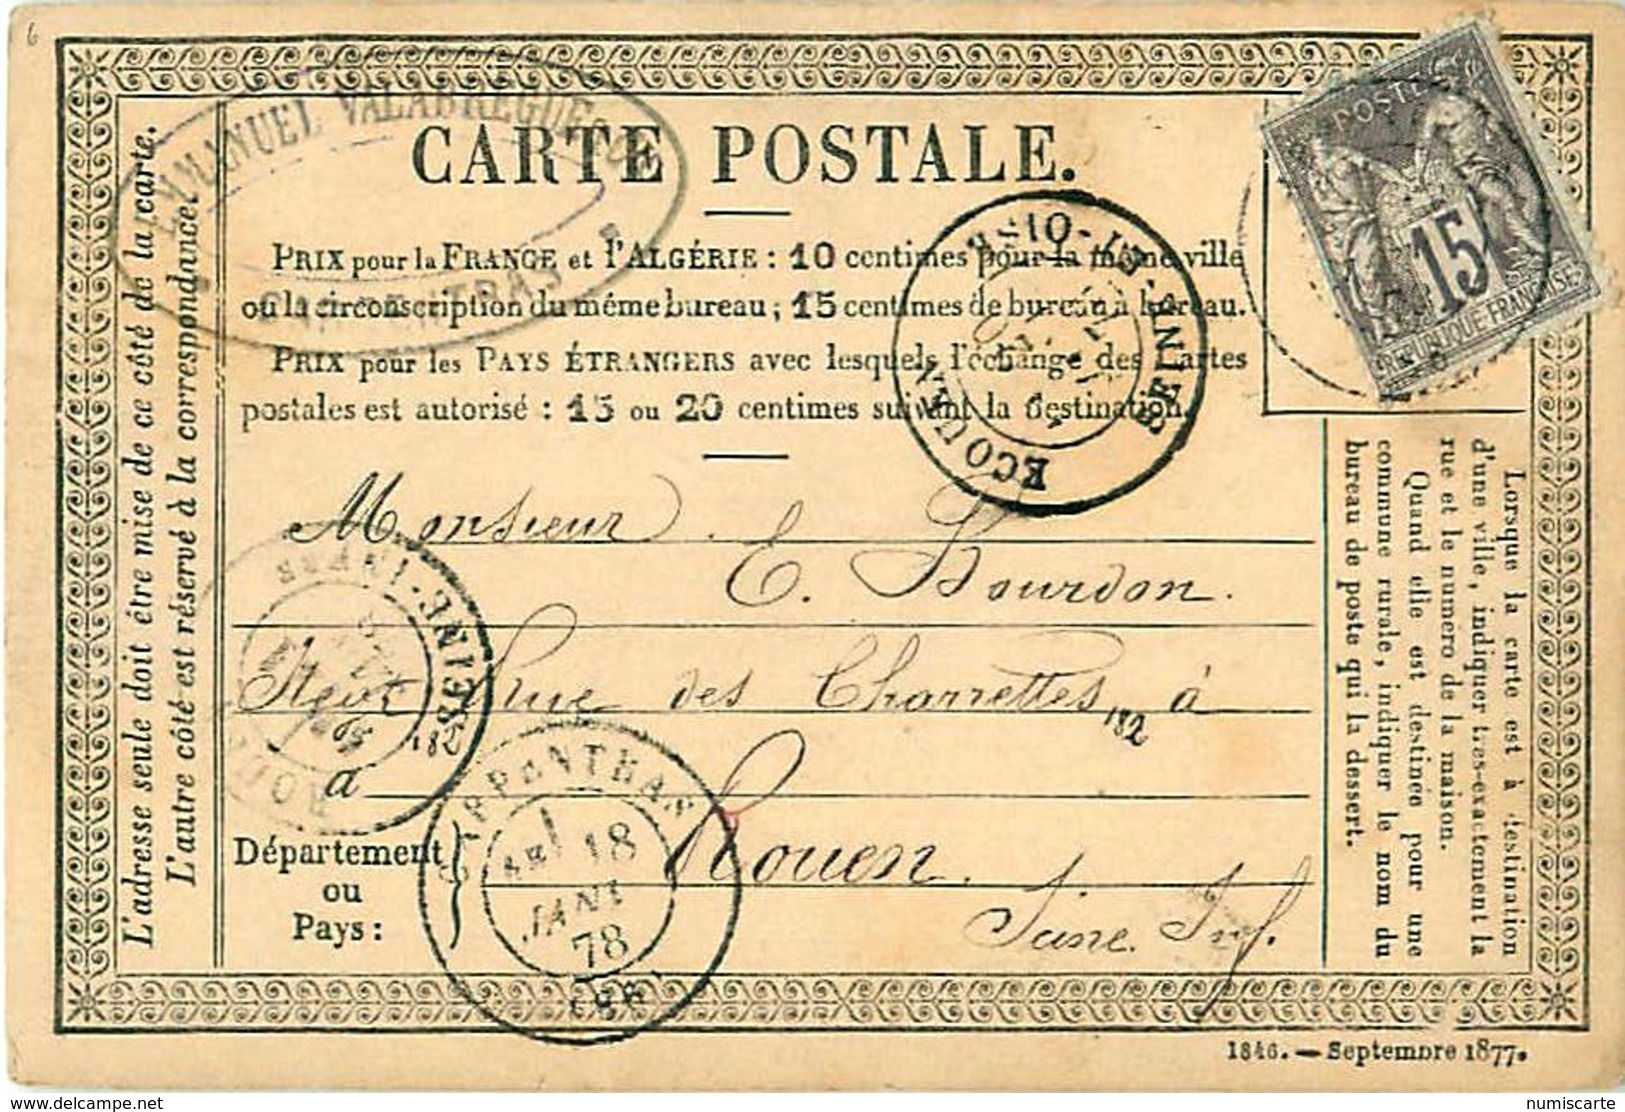 6
EMMANUEL VALABREGUE
CARPENTRAS
CARTE POSTALE.
POSTE
15
RÉPUBLIQUE FRANÇAISE
PRIX pour la FRANCE et l'ALGÉRIE : 10 centimes pour la même ville
ou la circonscription du même bureau ; 15 centimes de bureau à bureau.
PRIX pour les PAYS ÉTRANGERS avec lesquels l'échange des Cartes
postales est autorisé : 15 ou 20 centimes suivant la destination.
L'adresse seule doit être mise de ce côté de la carte.
L'autre côté est réservé à la correspondance.
ECOUEN
SEINE-ET-OISE
Monsieur
E. Bourdon.
SEINE-INFRE
ROUEN
Rue des Charrettes 182 à
182
à
Rouen.
Département
ou
Pays :
Seine Inf.
CARPENTRAS
18
JANV
78
(86)
Lorsque la carte est à destination
d'une ville, indiquer tres-exactement la
rue et le numéro de la maison.
Quand elle est destinée pour une
commune rurale, indiquer le nom du
bureau de poste qui la dessert.
1846. — Septembre 1877.
www.delcampe.net
numiscarte